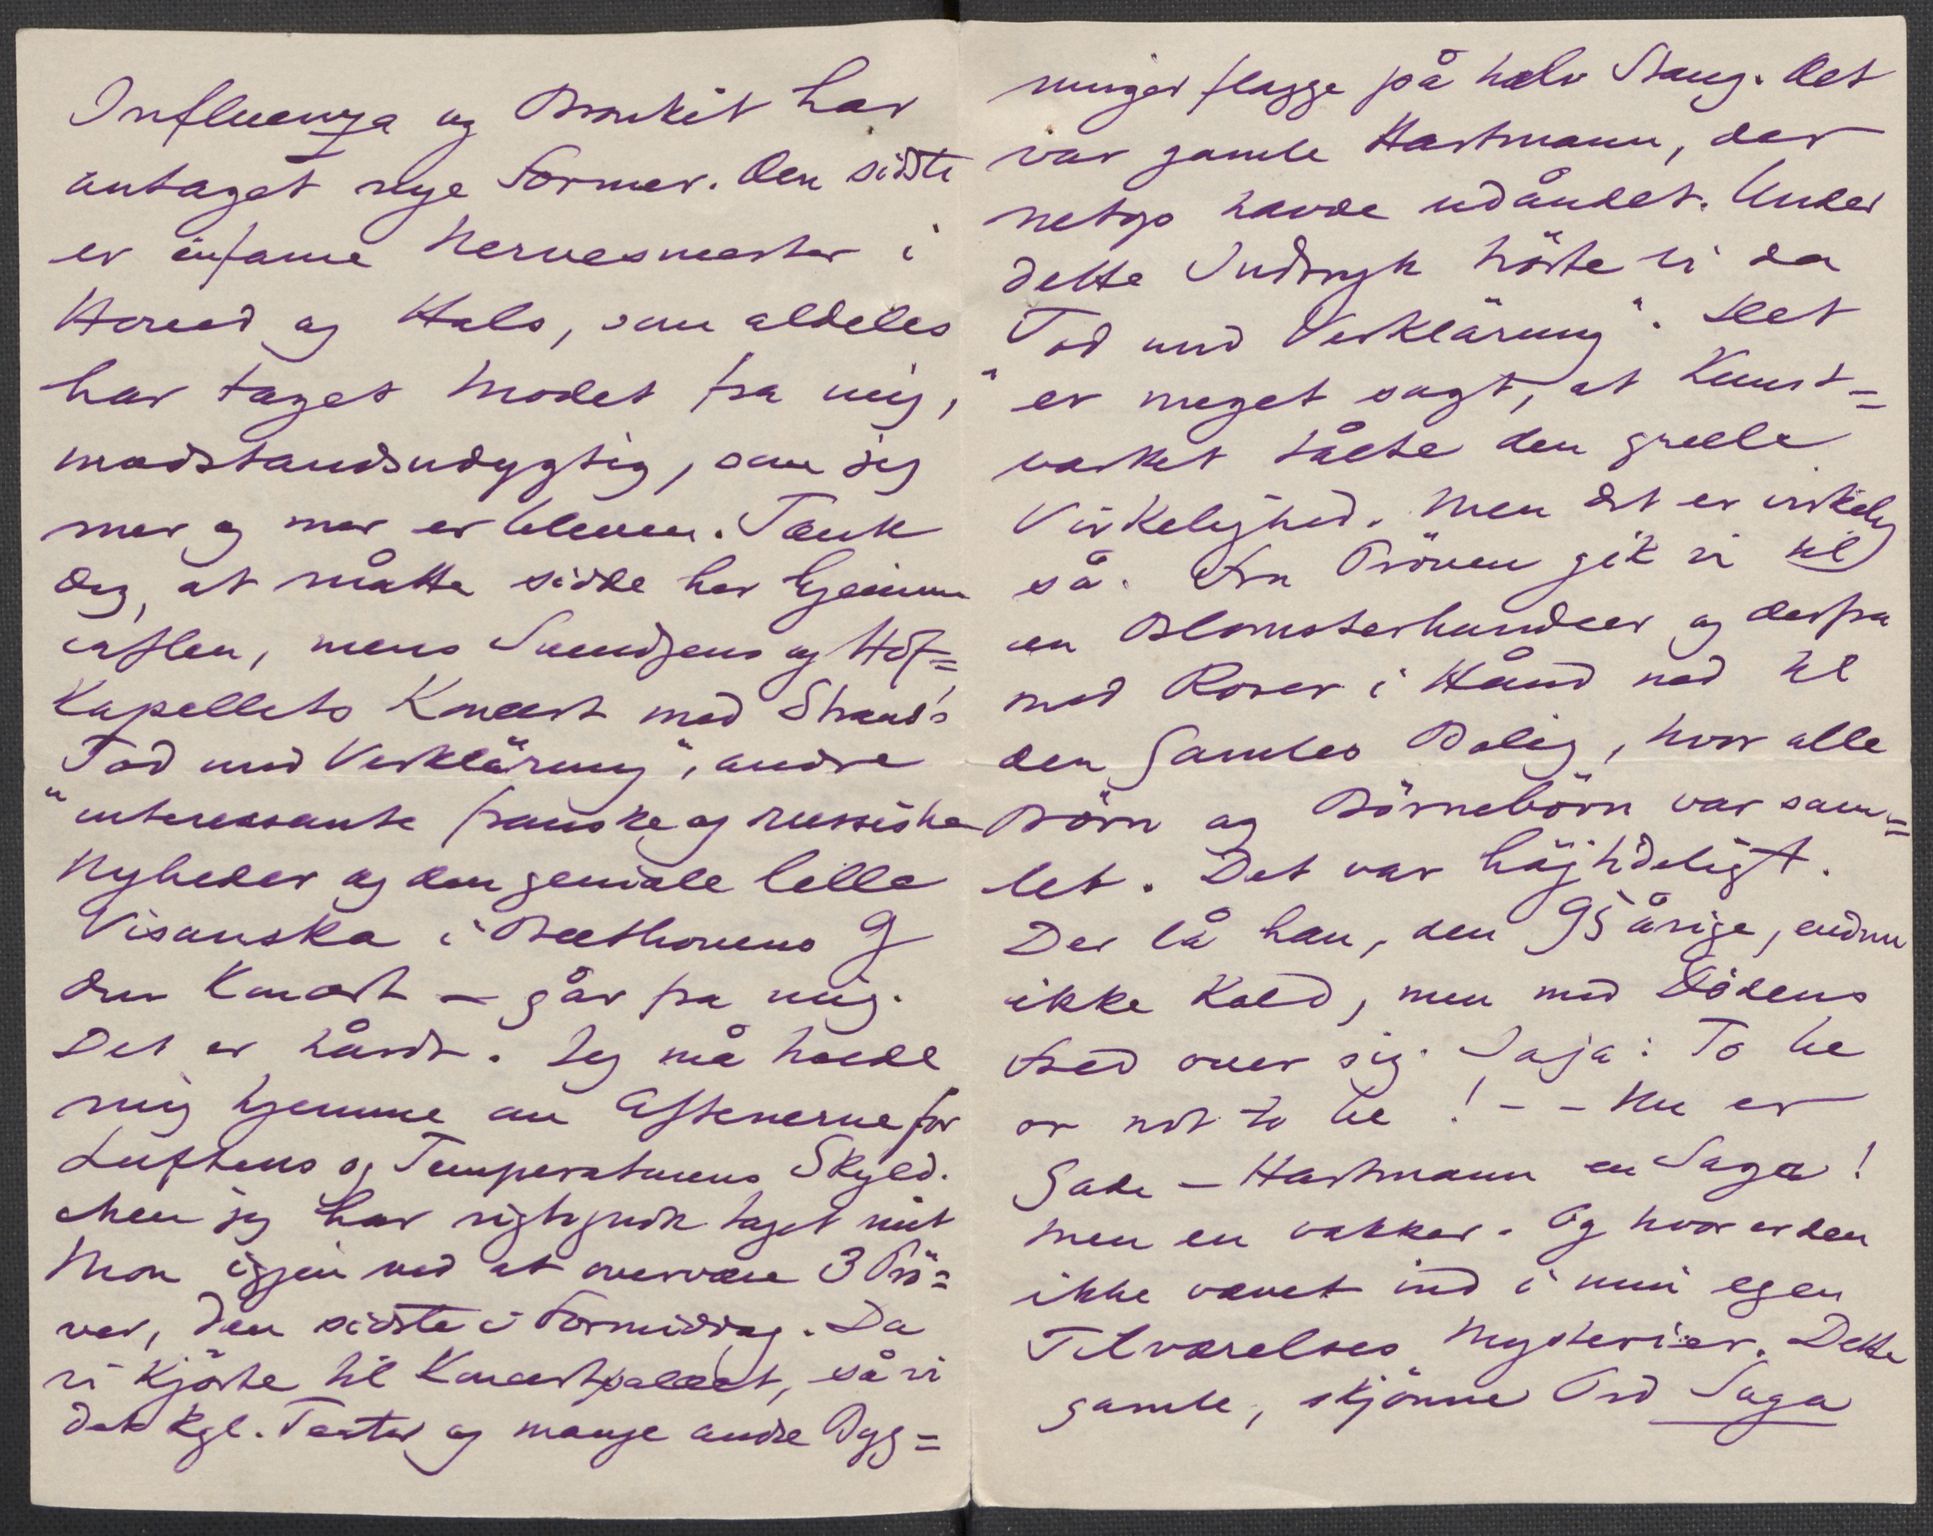 Influenza og Bronkit har
antaget nye Former. Den sidste
er infame Nervesmerter i
Hoved og Hals, som aldeles
har taget Modet fra mig,
modstandsudygtig, som jeg
mer og mer er bleven. Tænk
Dig, at måtte sidde her hjemme
iaften, mens Svendsens og Hof=
kapellets Koncert med Strauss's
"Tod und Verklärung", andre
interessante franske og russiske
Nyheder og den geniale lille
Visanska i Beethovens G
dur Koncert – går fra mig.
Det er hårdt. Jeg må holde
mig hjemme om Aftenerne for
Luftens og Temperaturens Skyld.
Men jeg har rigtignok taget mit
Mon igjen ved at overvære 3 Prö=
ver, den sidste i Formiddag. Da
vi kjörte til Koncertpalæet, så vi
det kgl. Teater og mange andre Byg=
ninger flagge på halv Stang. Det
var gamle Hartmann, der
netop havde udåndet. Under
dette Indtryk hörte vi da
"Tod und Verklärung". Det
er meget sagt, at Kunst=
værket tålte den grelle
Virkelighed. Men det er virkelig
så. Fra Pröven gik vi til
en Blomsterhandler og derfra
med Roser i Hånd ned til
den Gamles Bolig, hvor alle
Börn og Börnebörn var sam=
let. Det var höjtideligt.
Der lå han, den 95 årige, endnu
ikke kold, men med Dödens
Fred over sig. Jaja: To be
or not to be! – – Nu er
Gade – Hartmann en Saga!
Men en vakker. Og hvor er den
ikke vævet ind i min egen
Tilværelses Mysterier. Dette
gamle, skjönne Ord Saga